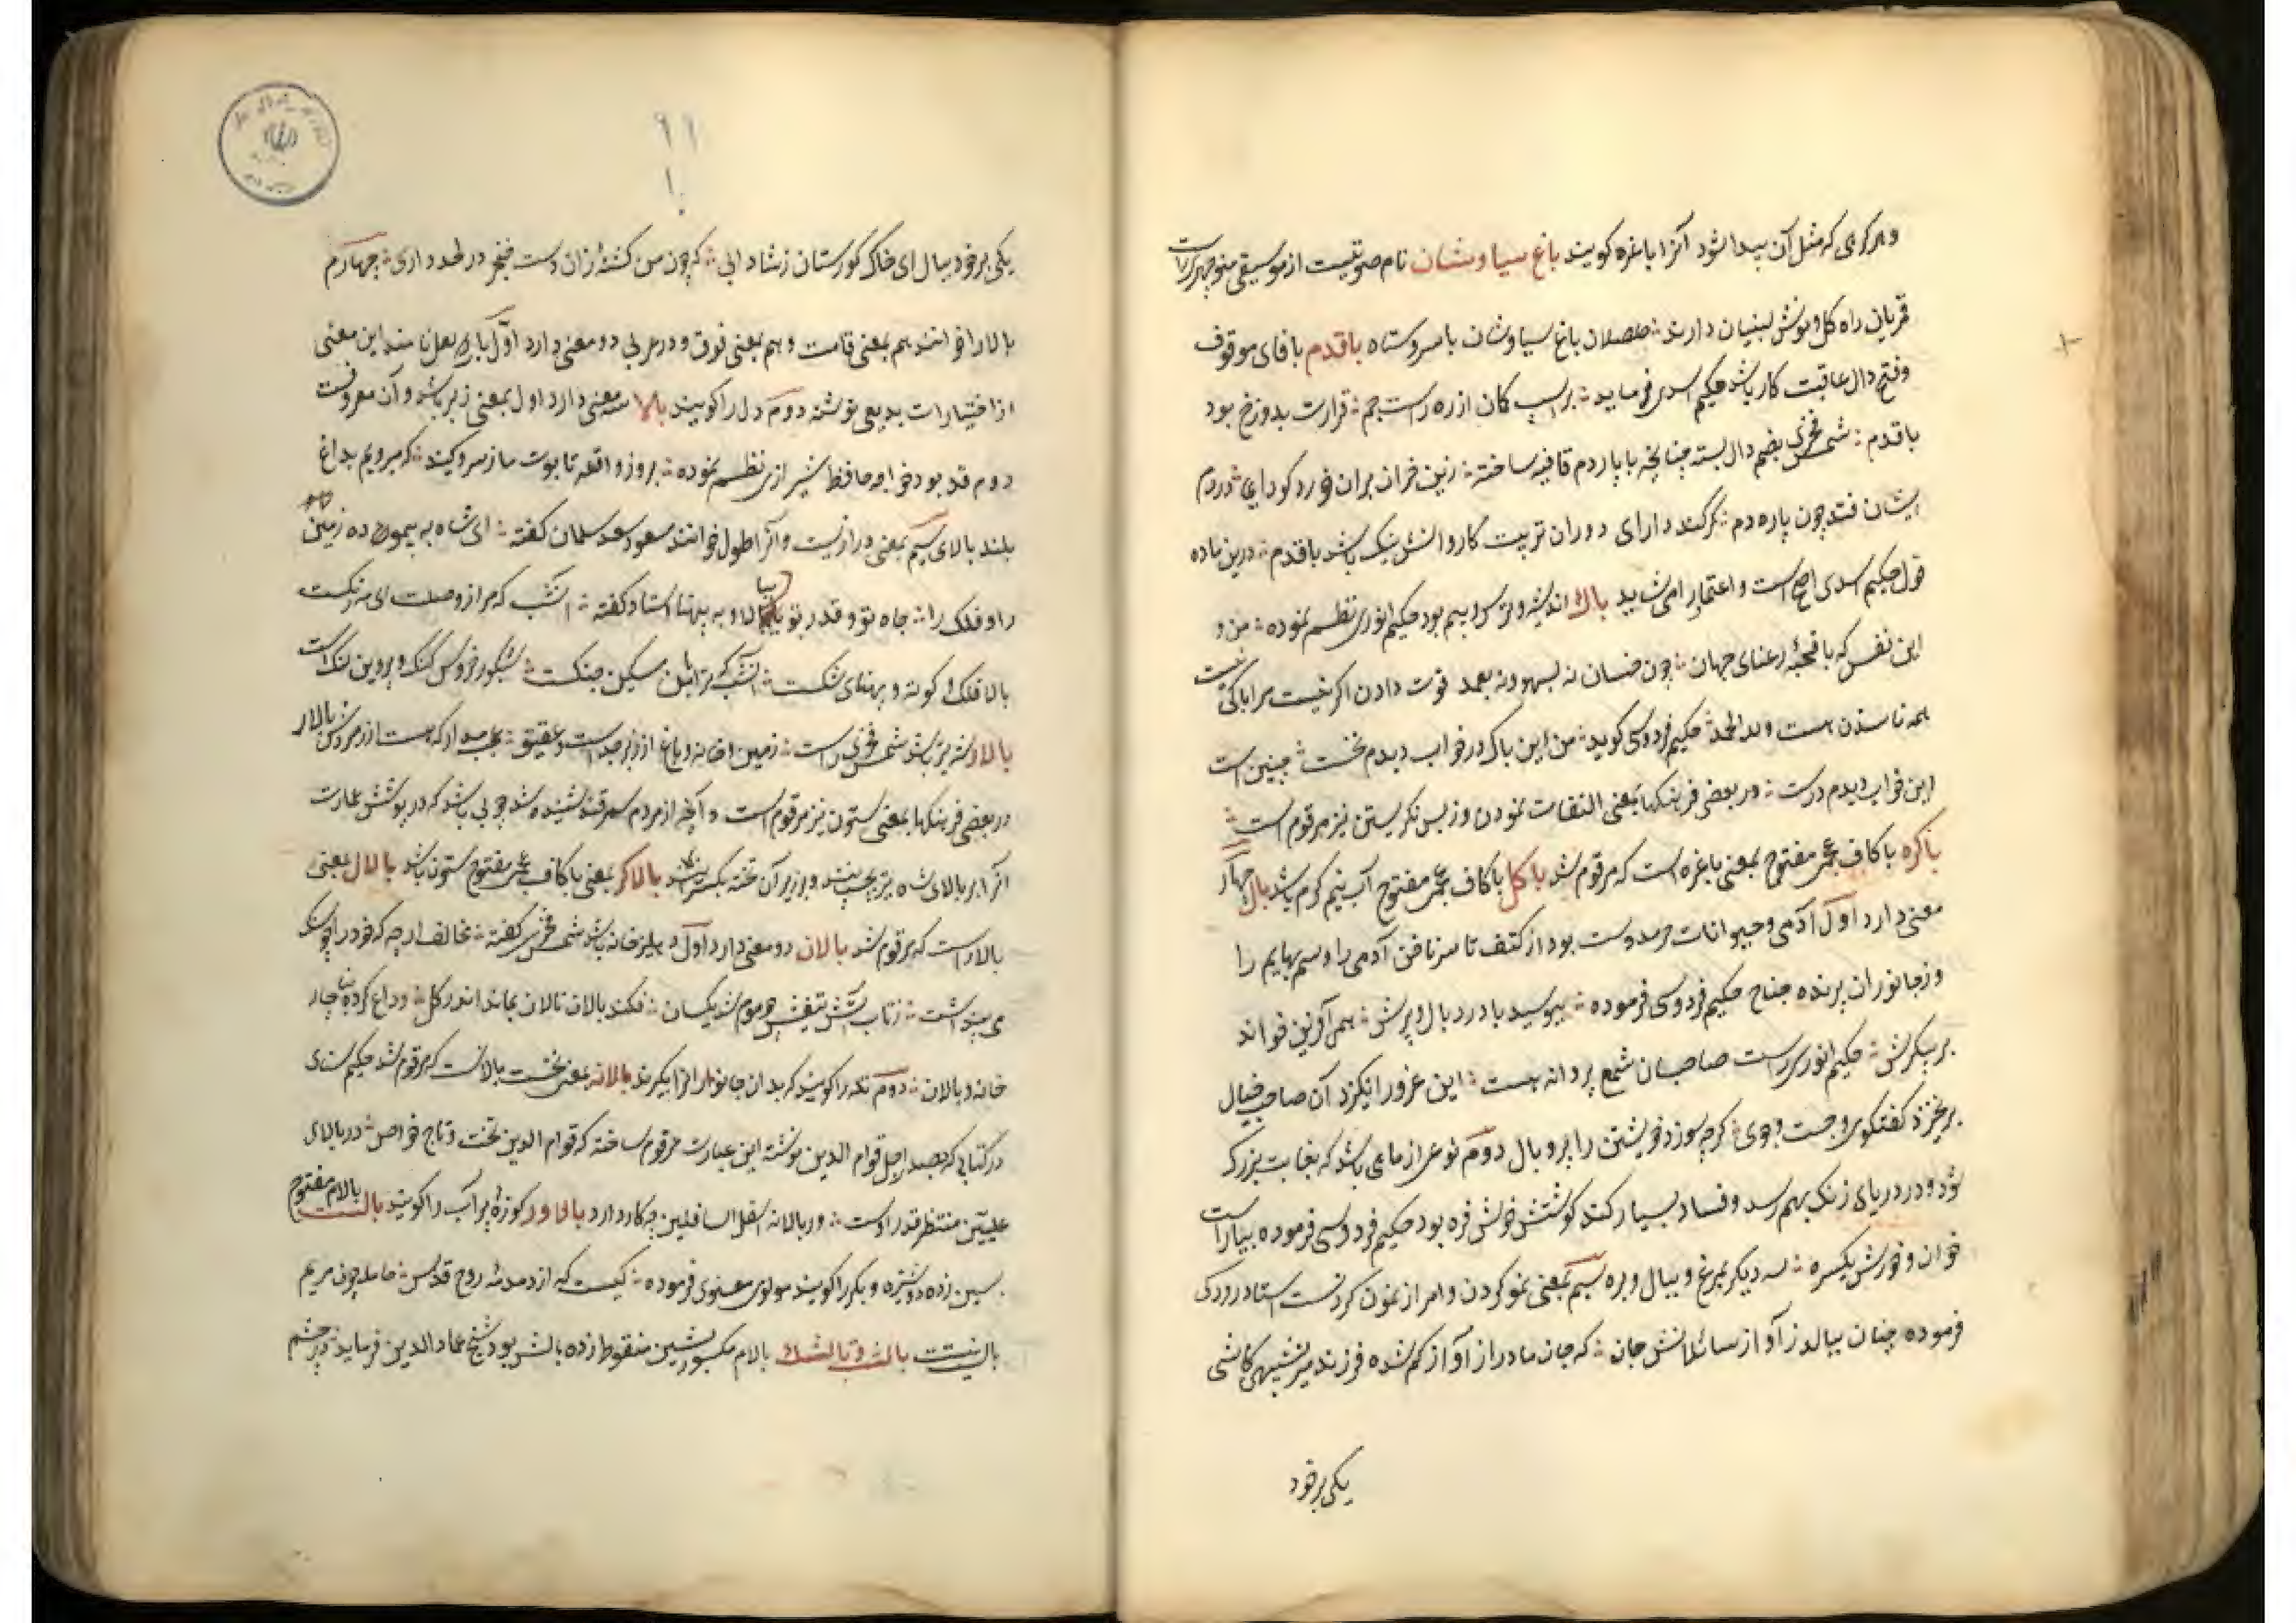 و هر کرهی که مثل آن پیدا شود آنرا باغره کویند باغ سیاوشان نام صوتیست از موسیقی منوچهر راست
قمریان راه کل و نوش لبینان دارند صلصلان باغ سیاوشان با سروستاه بافدم با فای موقوف
و فتح دال عاقبت کار باشد حکیم اسدی فرماید بر اسپ کمان از ره راست خم قرارت بدوزخ بود
بافدم شمس فخری بضم دال بسته چنانچه با پاردم قافیه ساخته
ایشان فتد چون پاره دم نکر کند دارای دوران تربیت کار دانش نیک باشد بافدم درین ماده
قول حکیم اسدی اصح است و اعتماد را می شاید باک اندیشه و ترس و بیم بود حکیم انوری نظم نموده من و
این نفس که با قحبه رعنای جهان چون خسان نه بسهو و نه بعمد قوت دادن اگر نیست مرا باکی نیست
همه ناستدن هست و لله الحمد حکیم فردوسی کوید من این باک در خواب دیدم نخست چنین است
این خواب دیدم درست در بعضی فرهنکها بمعنی التفات نمودن و ز پس نکریستن نیز مرقوم است
باکره با کاف عجمی مفتوح بمعنی باغره است که مرقوم شد باکل با کاف عجمی مفتوح آب نیم کرم باشد بال چهار
معنی دارد اول آدمی و حیوانات مر دوست بود از کتف تا سر ناخن آدمی را و سم بهایم را
و ز جانوران پرنده جناح حکیم فردوسی فرموده ببوسید با درد بال و پرش همی آفرین خواند
بر پیکرش حکیم انوری راست صاحبان شمع پروانه هست این غرور انکیزد آن صاحب خیال
برنخیزد کفتکوی و جست و جوی کرچه سوزد خویشتن را پر و بال دوم نوعی از ماهی باشد که بغایت بزرک
شود و در دریای زنک بهم رسد و فساد بسیار کند کوشتش خوش فره بود حکیم فردوسی فرموده بیاراست
خوان و خورش یکسره سه دیکر بمرغ و ببال و بره سیم بمعنی نمو کردن و امر از نمون کردنست استاد رودکی
فرموده چنان ببالد ز آواز سائلانش جان که جان مادر از آواز کم شده فرزند میر شیهی کاشی
یکی بر خود
۹۱
۱۰
یکی بر خود ببال ای خاک کورستان ز شادابی که چون من کشته زان دست خنجر در لحد داری چهارم
بالا را خوانند هم بمعنی قامت و هم بمعنی فوق و در عربی دو معنی دارد اول باری بغل نامند این معنی
از اختیارات بدیعی نوشته دوم دل را کویند بالا سه معنی دارد اول بمعنی زبر باشد و آن معروفست
دوم قد بود خواجه حافظ شیرازی نظم نموده بروز واقعه تابوت ما ز سرو کنید که میرویم بداغ
بلند بالای سیم بمعنی درازیست و آنرا طول خوانند مسعود سعد سلمان کفته ای شاه به پیمود ده زمین
را و فلک را جاه تو و قدر تو ببالا و به پهنا استاد کفته امشب که مرا ز وصلت ای مه رنکست
بالا فلک کوته و پهنای تنکست امشب که مرا سکین جنکست شبکور خروس کنک و پروین لنک است
بالار شه تیر باشد شمس فخری راست زمین خانه و باغ از زبرجدست و عقیق عجب مدار که هست از زمردش بالار
در بعضی فرهنکها بمعنی ستون نیز مرقوم است و آنچه از مردم سمرقند شنیده شد چوبی باشد که در پوشش عمارت
آنرا بر بالای شاه تیر بچینند و بر زبر آن تخته بکسترانند بالاکر بمعنی با کاف عجمی مفتوح ستون باشد بالال بمعنی
بالار است که مرقوم شد بالان دو معنی دارد اول دهلیز خانه باشد شمس فخری کفته مخالف ارچه که خود را چو سنک
می پنداشت ز تاب آتش تیغش چو موم شد یکسان فکند بالان نالان بماند اندر کل وداع کرده بناچار
خانه و بالان دوم تله را کویند که بدان جانوران را بکیرند بالانه بمعنی نخست بالانست که مرقوم شد حکیم سنای
در کتابی که بصدر اجل قوام الدین نوشته این عبارت مرقوم ساخته که قوام الدین تخت و تاج خواص در بالای
علیین منتظر قدر اوست در بالانه اسفل السافلین چه کار دارد بالاور کوزه پر آب را کویند بالست بالام مفتوح
بسین زده دوشیزه و بکر را کویند مولوی معنوی فرموده کیست که از دمدمه روح قدس حامله چون مریم
بالست نیست بالش و بالشک بالام مکسور بشین منقوط زده بالش بود شیخ عماد الدین فرماید در چشم